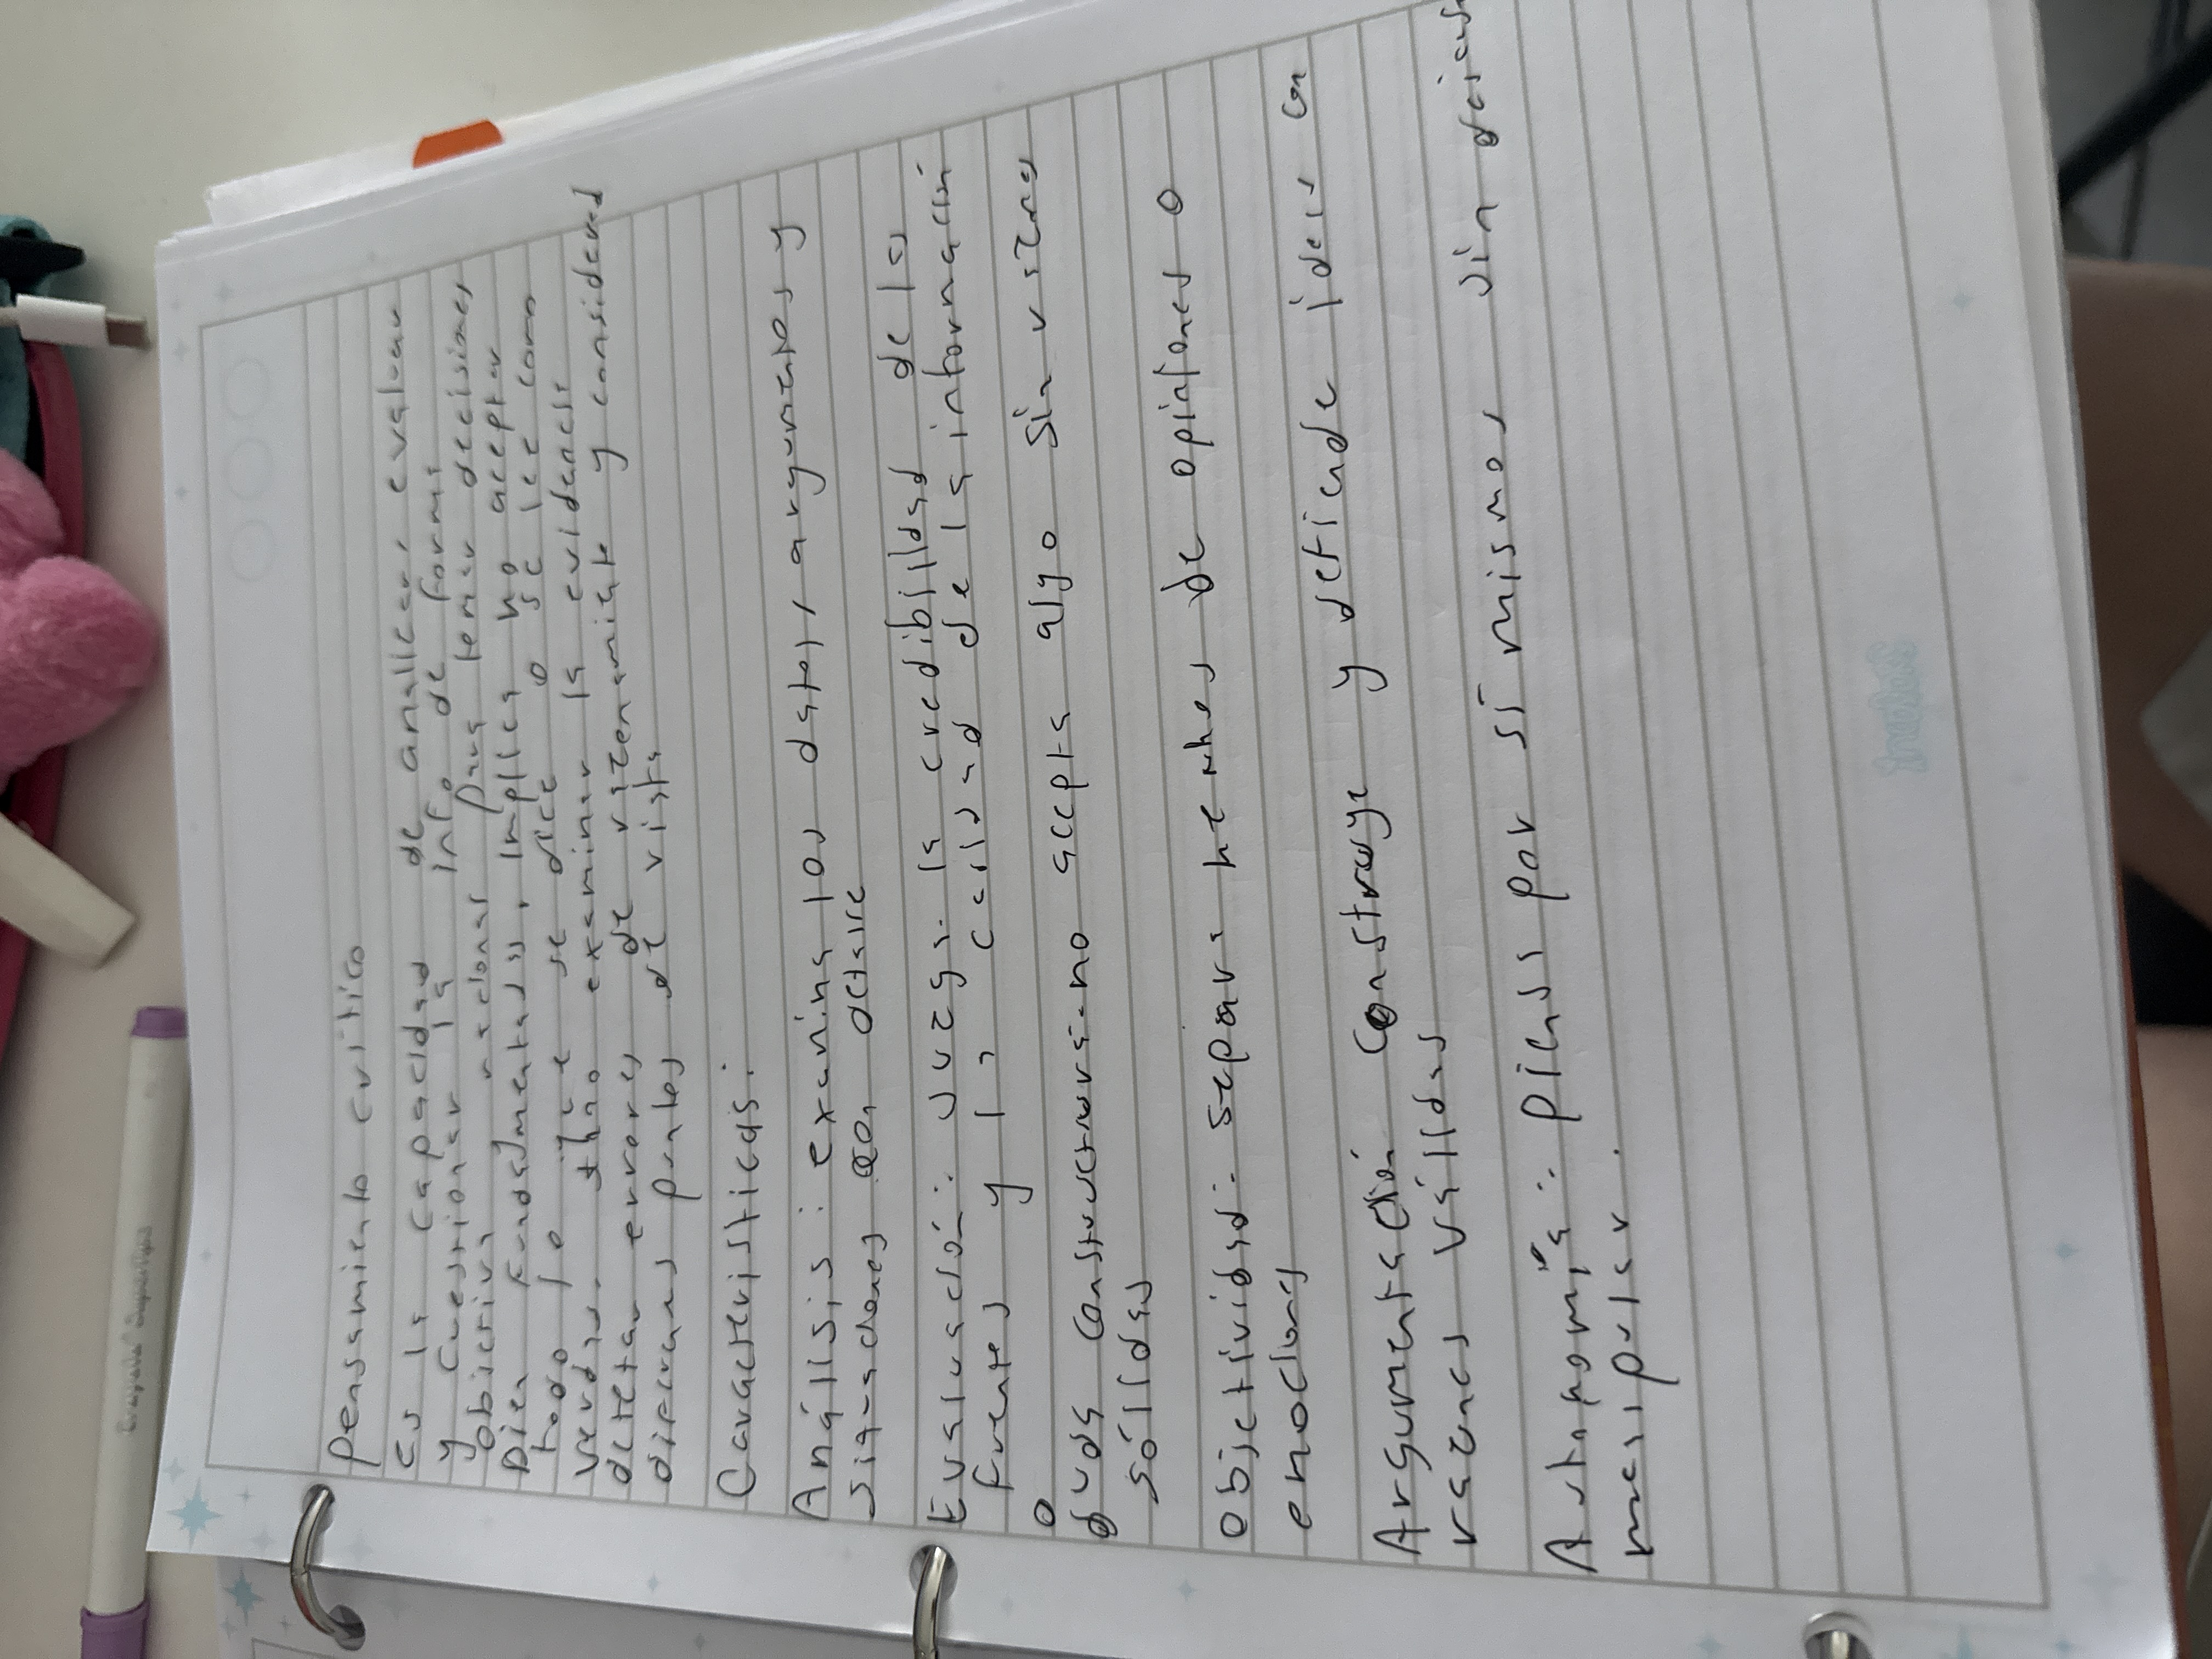 pensamiento crítico
es la capacidad de anallcar, evaluar
y cuestionar la info de forma
objectiva racional para tomar decisiones
Dien fundadmentadas, implica no aceptar
todo lo que se dice o se lee como
verdad. sino examinar la evidencia
detectar errores de razonamiento y considerad
diferentes puntos de vista
Caracteristicas:
Análisis: examina los datos, argumentos y
situaciones con detalle
Evaluación: Juzga la credibilidad de la
fuentes y la calidad de la información
duda constructora: no acepta algo sin razones
sólidas
objectividad: separa hechos de opiniones o
emociones
Argumentación Construye y defiende ideas con
razones válidas
Autonomía: piensa por sí mismo, sin dejars
manipular.
Crayola Supertips